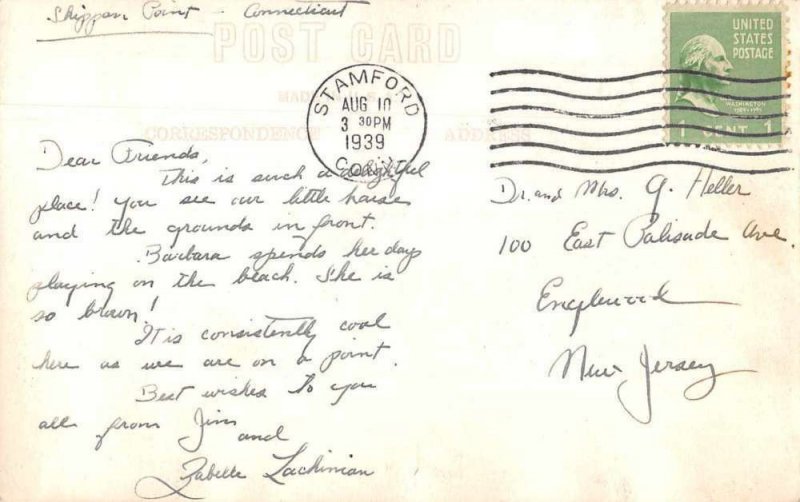 Shippan Point - Connecticut
POST CARD
MADE IN U.S.A.
CORRESPONDENCE
ADDRESS
UNITED
STATES
POSTAGE
WASHINGTON
1 CENT 1
STAMFORD
AUG 10
3 30 PM
1939
CONN.
Dear Friends,
This is such a delightful
place! You see our little house
and the grounds in front.
Barbara spends her days
playing on the beach. She is
so brown!
It is consistently cool
here as we are on a point.
Best wishes to you
all from Jim
and
Zabelle Lachinian
Dr. and Mrs. G. Heller
100 East Palisade Ave.
Englewood
New Jersey